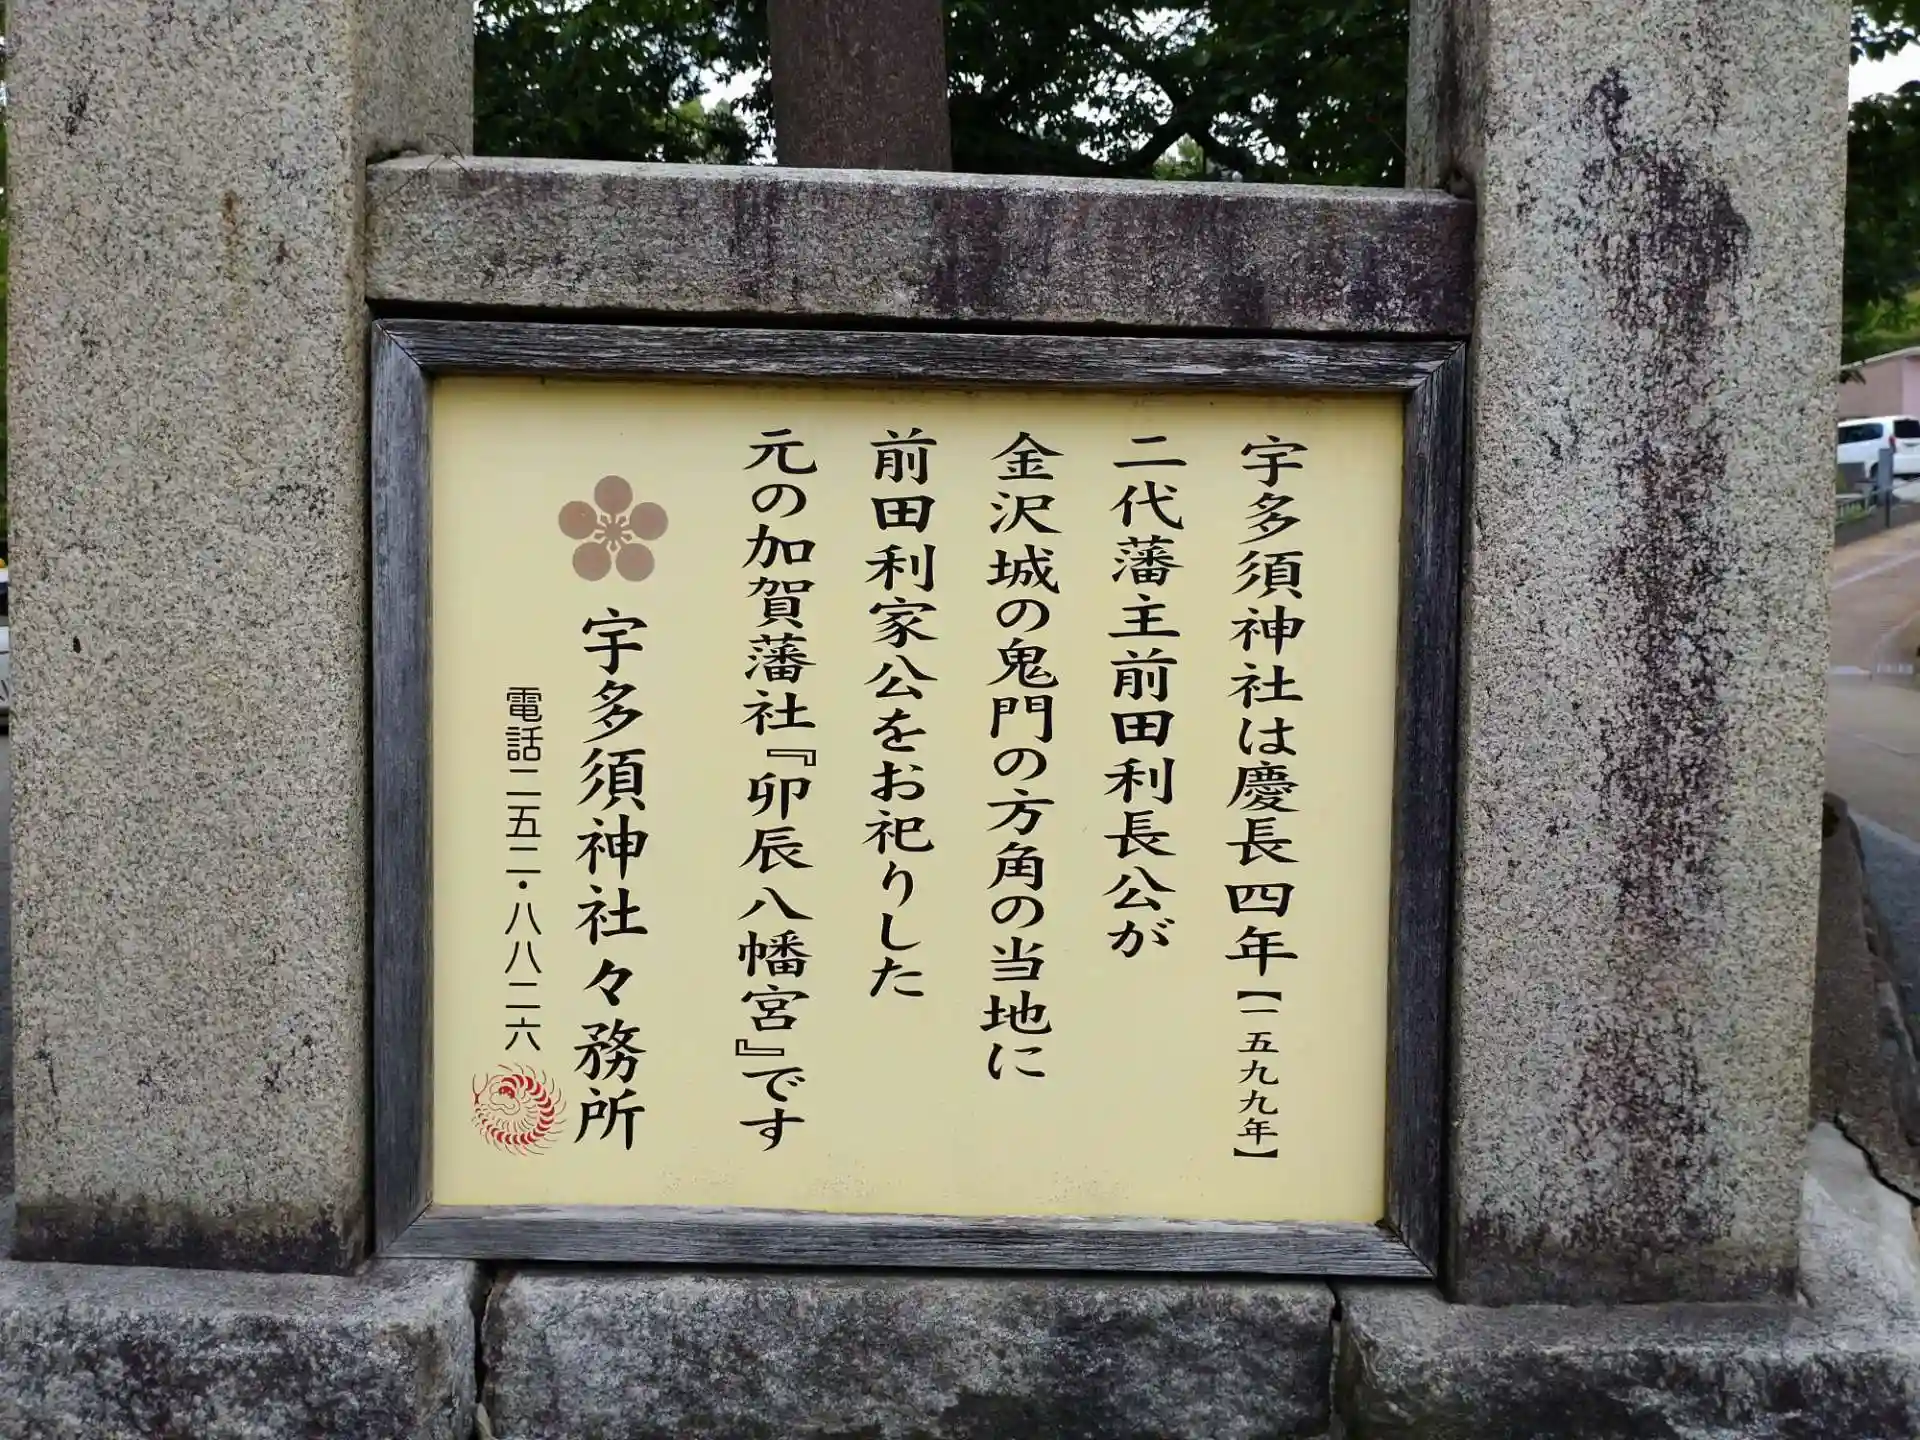 宇多須神社は慶長四年【一五九九年】
二代藩主前田利長公が
金沢城の鬼門の方角の当地に
前田利家公をお祀りした
元の加賀藩社『卯辰八幡宮』です
宇多須神社々務所
電話二五二・八八二六